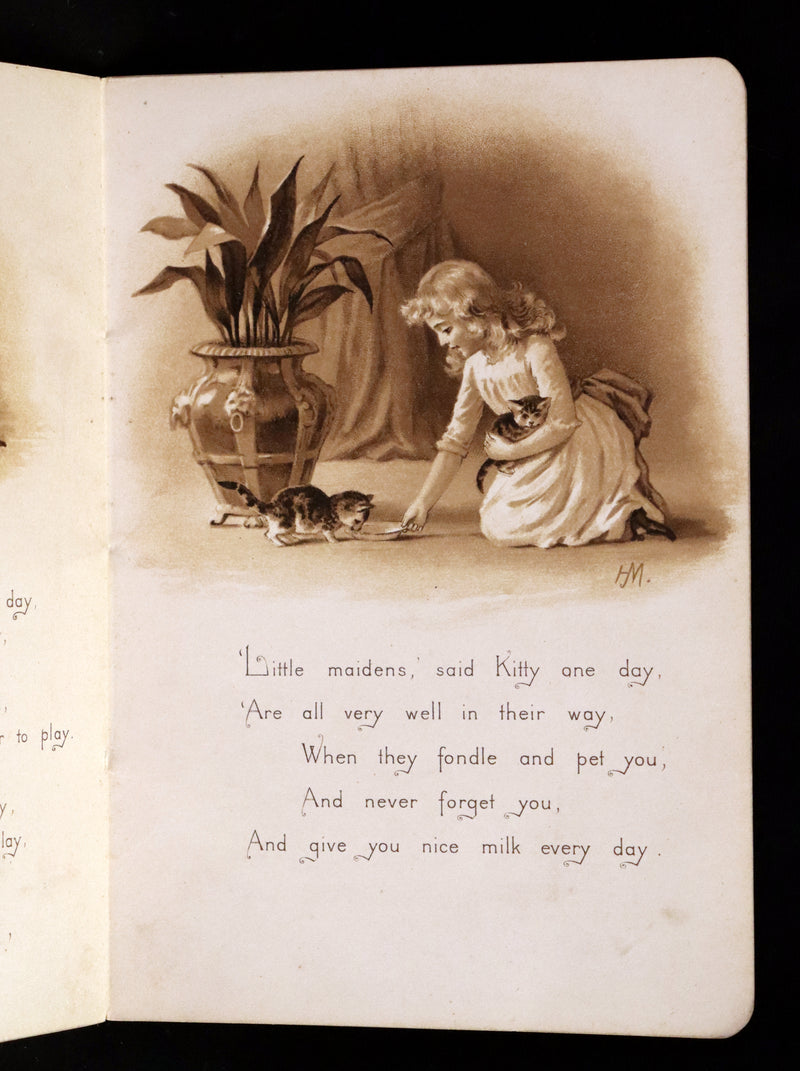 day,
to play.
lay,
HM.
'Little maidens,' said Kitty one day,
'Are all very well in their way,
When they fondle and pet you,
And never forget you,
And give you nice milk every day.